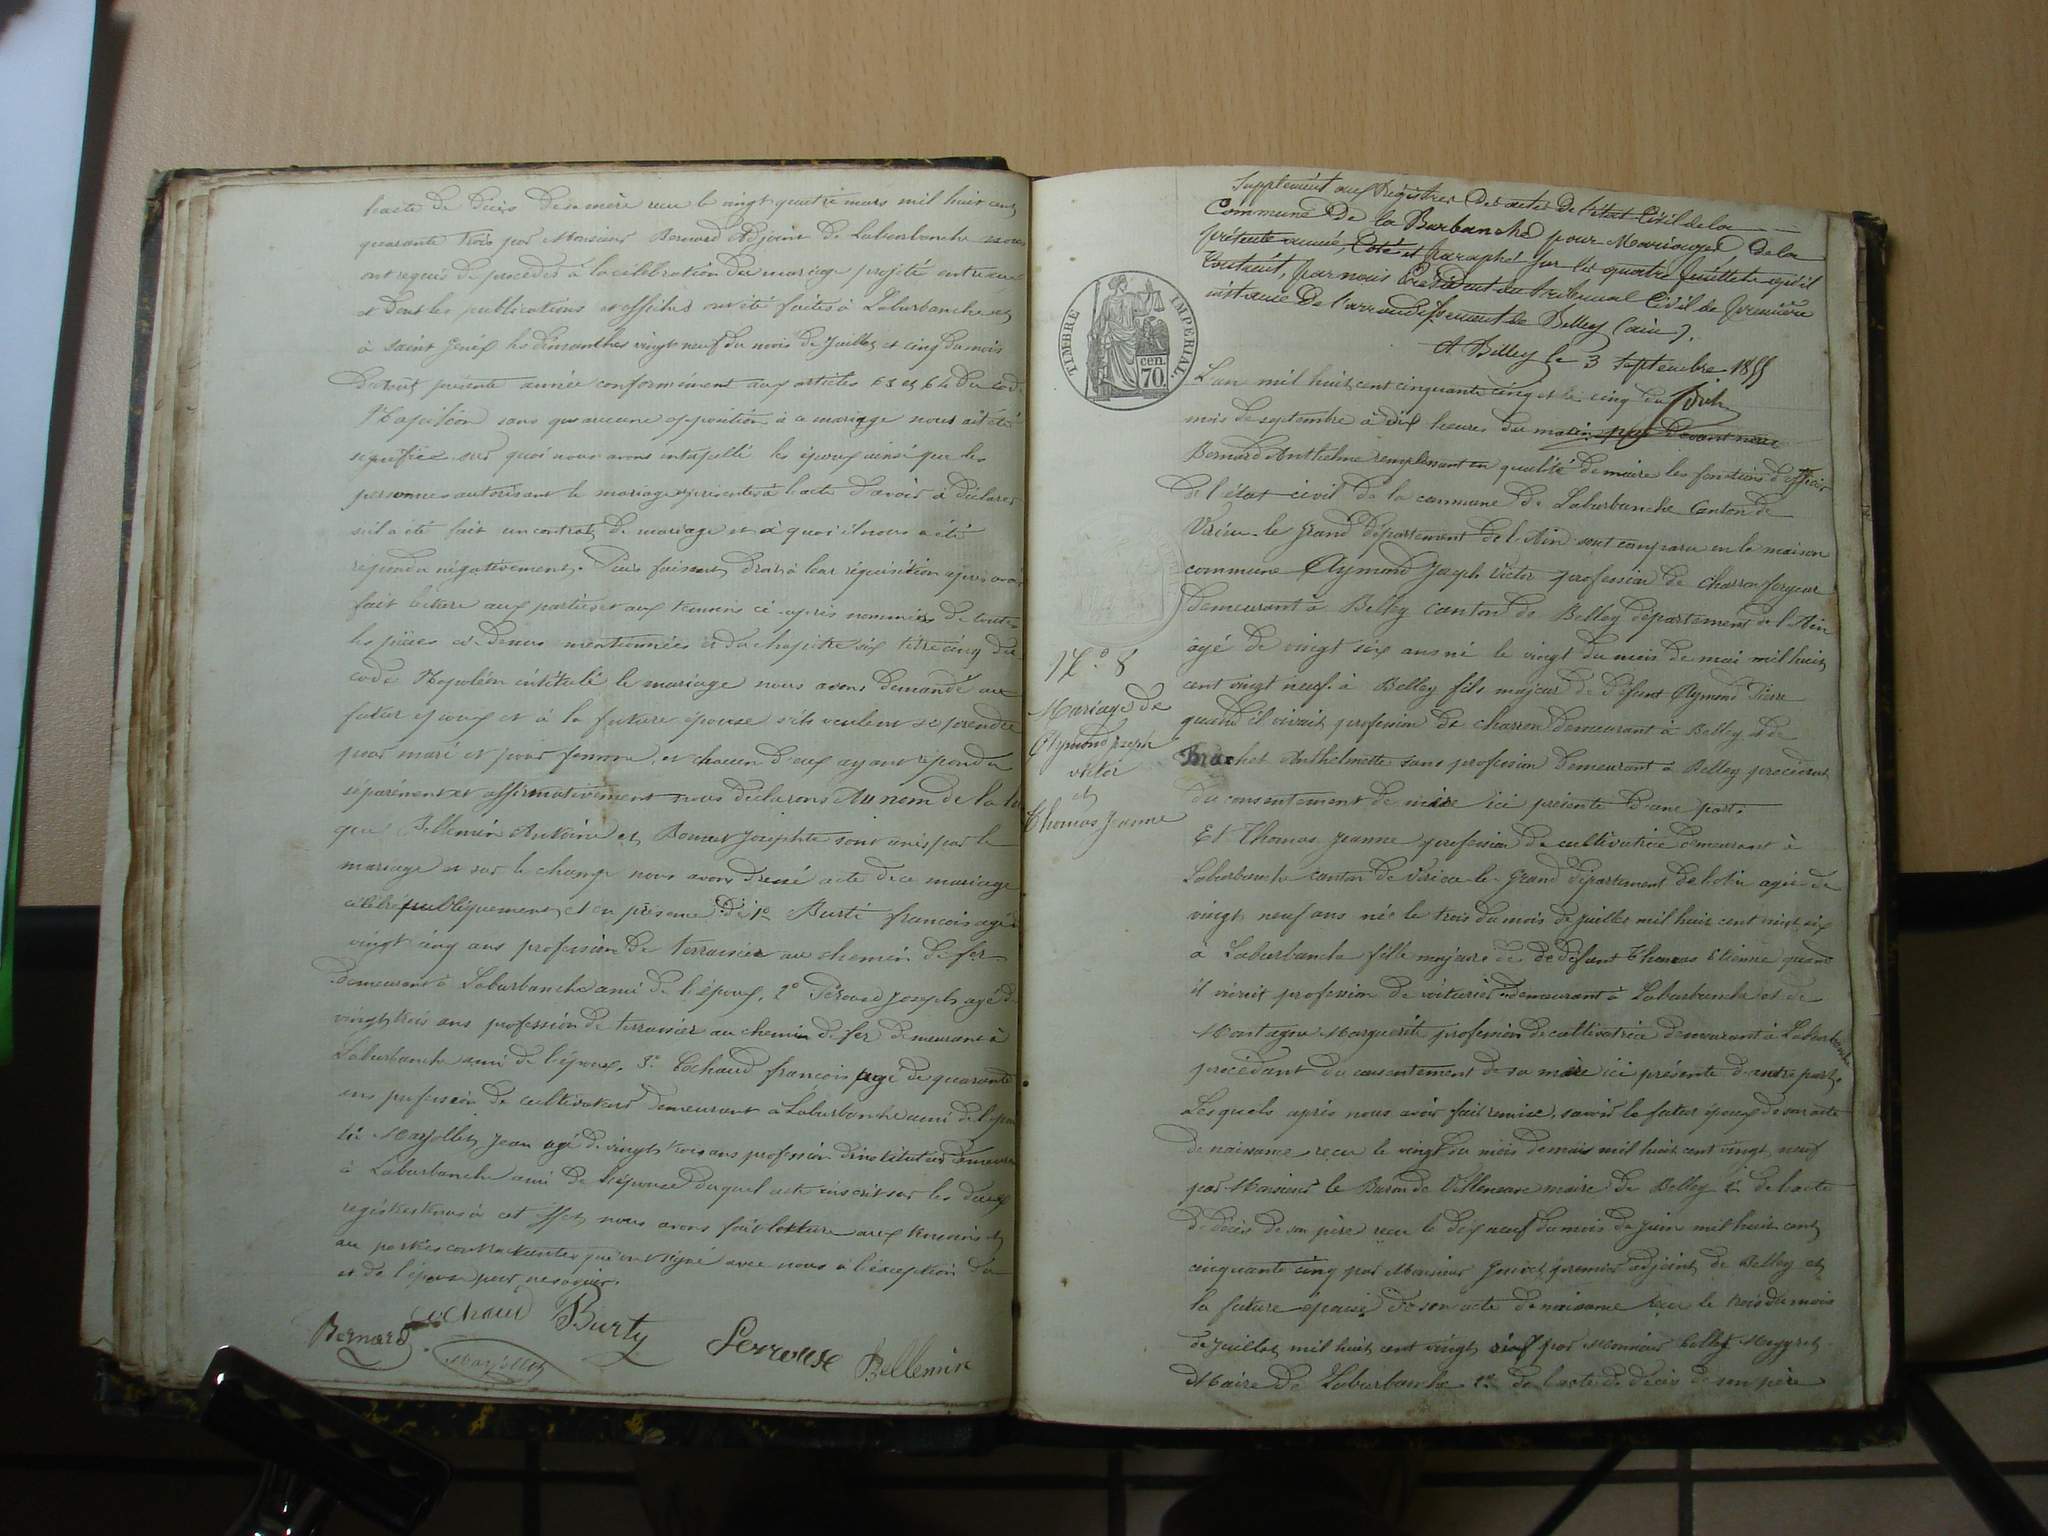 l'acte de décès de sa mère reçu le vingt quatre mars mil huit cent
quarante trois par Monsieur Bernard Adjoint de Laburbanche
ont requis de procéder à la célébration du mariage projeté entre eux
et dont les publications et affiches ont été faites à Laburbanche et
à saint Genix les dimanches vingt neuf du mois de Juillet et cinq du mois
D'août présente année conformément aux articles 63 et 64 du cod
Napoléon sans qu'aucune opposition à ce mariage nous ait été
signifiée sur quoi nous avons interpellé les époux ainsi que les
personnes autorisant le mariage présentes à l'acte d'avoir à déclarer
s'il a été fait un contrat de mariage et à quoi il nous a été
répondu négativement. Puis faisant droit à leur réquisition après avoir
fait lecture aux parties et aux témoins ci-après nommés de toutes
les pièces ci dessus mentionnées et du chapitre six titre cinq du
code Napoléon intitulé le mariage nous avons demandé au
futur époux et à la future épouse s'ils veulent se prendre
pour mari et pour femme, et chacun d'eux ayant répondu
séparément et affirmativement nous déclarons Au nom de la loi
que Bellemin Antoine et Bonnet Josephte sont unis par le
mariage et sur le champ nous avons dressé acte de ce mariage
célébré publiquement et en présence de 1º Burti francois agé
vingt cinq ans profession de terrassier au chemin de fer
demeurant à Laburbanche ami de l'époux, 2º Joseph agé de
vingt trois ans profession de terrassier au chemin de fer demeurant à
Laburbanche ami de l'époux, 3º Cochaud francois agé de quarante
ans profession de cultivateur demeurant à Laburbanche ami de
Jean agé de vingt trois ans profession d'instituteur demeurant
à Laburbanche ami de l'épouse duquel acte inscrit sur les deux
registres tenus à cet effet nous avons fait lecture aux témoins et
au parties contractantes qui ont signé avec nous à l'exception de
et de l'épouse pour ne savoir.
Bernard Cochaud Burty Perrouse Bellemin
Supplément aux Régistres des actes de l'état Civil de la
Commune de la Burbanche pour Mariages de la
présente année, Coté et paraphé sur les quatre feuillets qu'il
Contient, par nous Président du tribunal Civil de première
instance de l'arrondissement de Belley (ain).
A Belley le 3 Septembre 1855
TIMBRE IMPERIAL
cen. 70.
L'an mil huit cent cinquante cinq et le cinq du
mois de septembre à dix heures du matin par devant nous
Bernard Anthelme remplissant en qualité de maire les fonctions d'officier
de l'état civil de la commune de Laburbanche Canton de
Virieu-le grand département de l'Ain sont comparu en la maison
commune Aymond Joseph Victor profession de charron forgeur
demeurant à Belley canton de Belley département de l'Ain
âgé de vingt six ans né le vingt du mois de mai mil huit
cent vingt neuf à Belley fils majeur de défunt Aymond Pierre
quand il vivait profession de charron demeurant à Belley et de
Brachet Anthelmette sans profession demeurant à Belley procédant
du consentement de mère ici présente d'une part.
Nº 8
Mariage de
Aymond Joseph
victor
et
Thomas Jeanne
Et Thomas Jeanne profession de cultivatrice demeurant à
Laburbanche canton de Virieu-le-Grand département de l'Ain agée de
vingt neuf ans née le trois du mois de juillet mil huit cent vingt six
à Laburbanche fille majeure de de défunt Thomas Etienne quand
il vivait profession de voiturier demeurant à Laburbanche et de
Montagne Marguerite profession de cultivatrice demeurant à Laburbanche
procédant du consentement de sa mère ici présente d'autre part.
Lesquels après nous avoir fait remise, savoir le futur époux de son acte
de naissance reçu le vingt du mois de mai mil huit cent vingt neuf
par Monsieur le Baron de Villeneuve maire de Belley 2º de l'acte
de décès de son père reçu le dix neuf du mois de Juin mil huit cent
cinquante cinq par Monsieur premier adjoint de Belley et
la future épouse de son acte de naissance reçu le trois du mois
de Juillet mil huit cent vingt six par Monsieur
Maire de Laburbanche 2º de l'acte de décès de son père